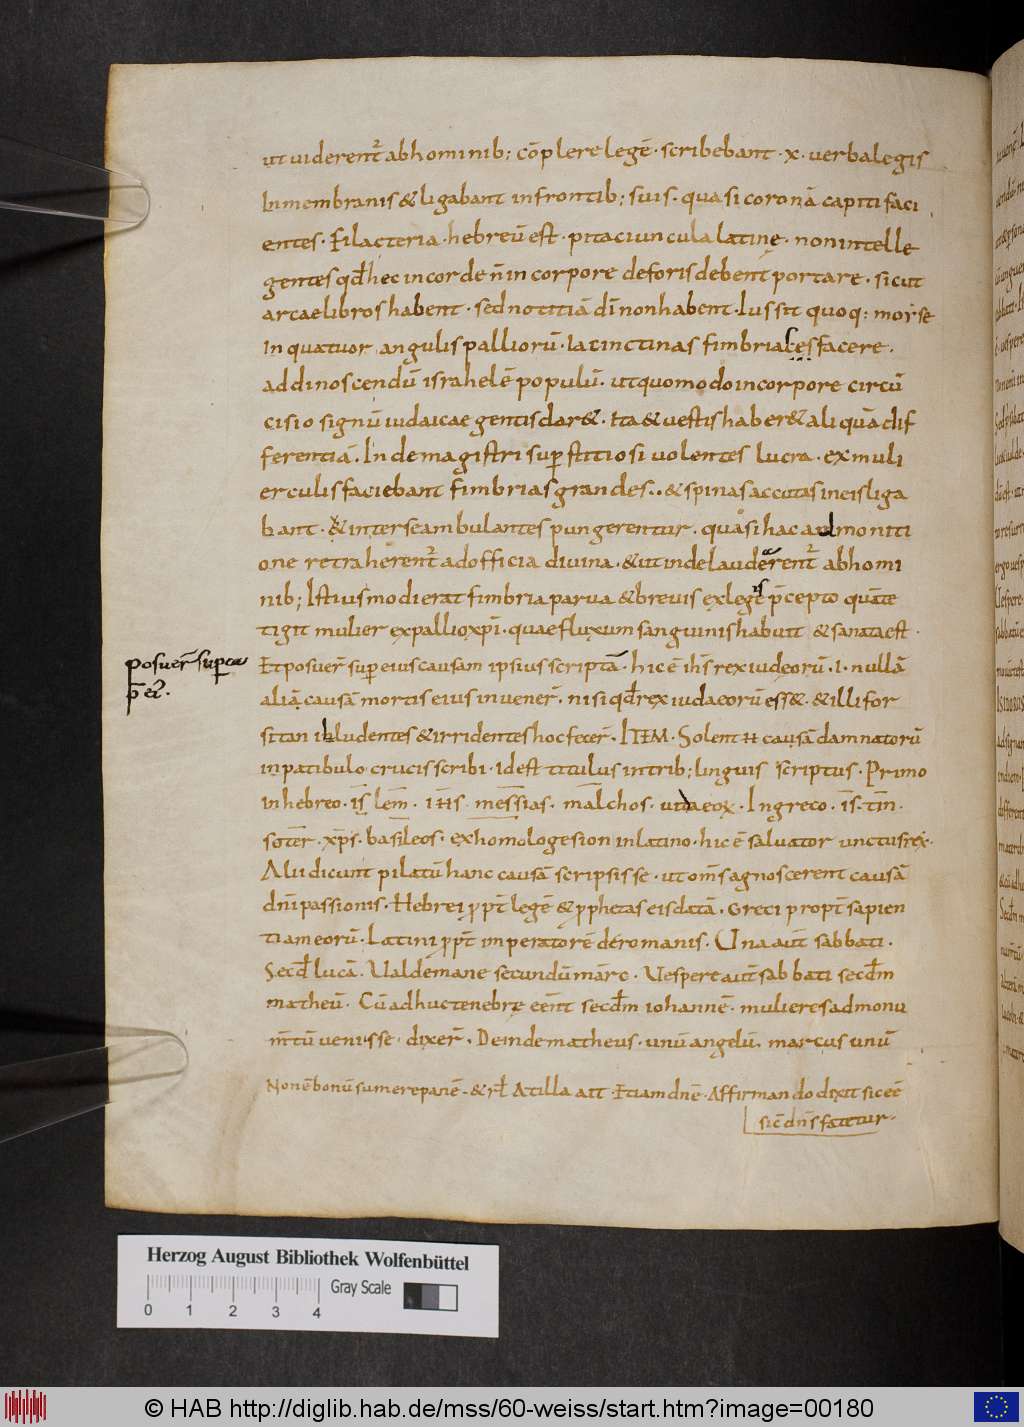 ut viderent᷑ ab hominib; cōplere legē · scribebant · x · verba legis
In membranis & ligabant in frontib; suis · quasi coronā capiti faci
entes · Filacteria · hebreū est · pitaciuncula latinę · non intelle
gentes qđ hec in corde ñ in corpore deforis debent portare · sicut
arcae libros habent · sed notitiā dī non habent · Iussit quoq: moyse
In quatuor angulis palliorū · Iacinctinas fimbrias facere ·
ad dinoscendū israhelē populū · ut quomodo in corpore circū
cisio signū iudaicae gentis dar& · Ita & uestis haber& aliquā dif
ferentiā · Inde magistri suꝑstitiosi volentes lucra · ex muli
erculis faciebant fimbrias grandes · & spinas accutas in eis liga
bant · & inter se ambulantes pungerentur · quasi hac admoniti
one retraherent᷑ ad officia divina · & ut inde laudarent᷑ ab homi
nib; Istiusmodi erat fimbria parua & brevis ex legis p̄cepto quā te
tigit mulier ex pallio xp̄i · quae fluxum sanguinis habuit & sanata est ·
posuer̄ supra
Et posuer̄ suꝑ eius causam ipsius scriptā · hic ē ih̄s rex iudeorū · i · nullā
aliā causā mortis eius invener̄ · nisi qđ rex iudaeorū ess& · & illi for
sitan illudentes & irridentes hoc fecer̄ · ITEM · Solent causā damnatorū
in patibulo crucis scribi · Id est titulus in trib; linguis scriptus · Primo
in hebreo · is̄ lem̄ · IHS · mes̄sias · mal̄chos · iudaeoꝝ · In greco · is̄ · tin̄ ·
sotēr · xp̄s · basileos · exhomologesion in latino · hic ē salvator unctus rex ·
Alii dicunt pilatū hanc causā scripsisse · ut om̄s agnoscerent causā
dn̄i passionis · Hebrei ꝓpt̄ legē & ꝓphetas eis datā · Greci propt̄ sapien
tiam eorū · Latini ꝓpt̄ imperatorē de romanis · Una aūt sabbati ·
Secđ lucā · Ualde mane secundū marc · Uespere aūt sabbati secđm
matheū · Cū adhuc tenebrę eēnt secđm iohannē · mulieres ad monu
m̄tū venisse · dixer̄ · Deinde matheus · unū angelū · marcus unū
Non ē bonū sumere panē · & rł Atilla ait · Etiam dn̄e · Affirmando dixit sic eē
sic dn̄s fatetur ·
Herzog August Bibliothek Wolfenbüttel
Gray Scale
0 1 2 3 4
© HAB http://diglib.hab.de/mss/60-weiss/start.htm?image=00180